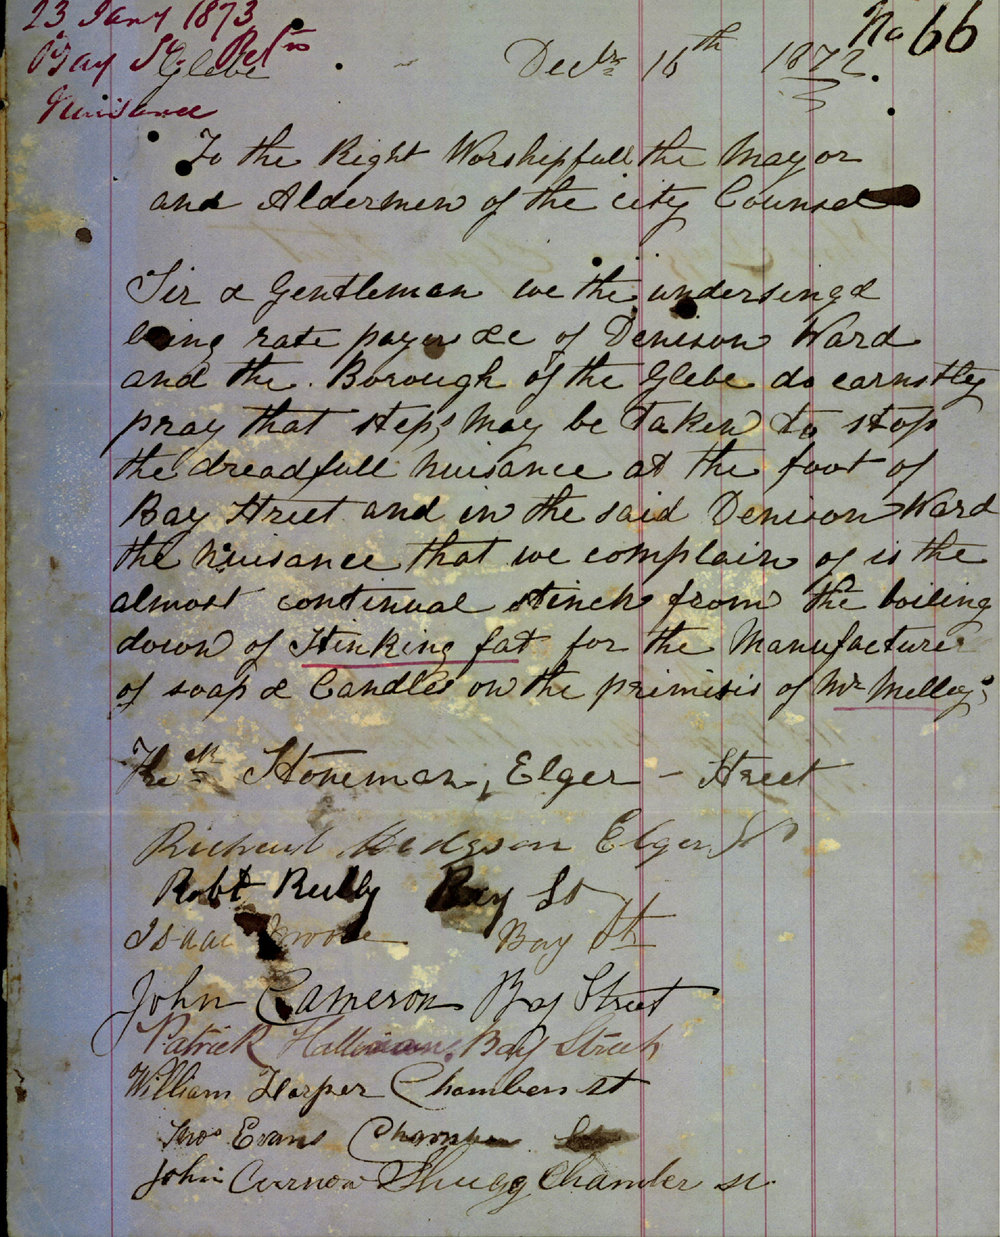 23 Jany 1873
No 66
Bay St. Glebe
Nuisance
Decbr 16th 1872.
To the Right Worshepfull the Mayor
and Aldermen of the city Counsel
Sir & Gentleman we the undersingd
being rate payers &c of Denison Ward
and the Borough of the Glebe do earnstly
pray that steps may be taken to stop
the dreadfull Nuisance at the foot of
Bay Street and in the said Denison Ward
the Nuisance that we complain of is the
almost continual stinck from the boiling
down of Stinking fat for the Manufacture
of soap & Candles on the primisis of Mr
Stoneman, Elger - Street
Richard Hodgson Elger St
Robt Reilly Bay St
Isaac Moore Bay St
John Cameron Bay Street
Patrick Bay Street
William Harper Chambers st
Thos Evans Chamber
John Shugg Chamber st